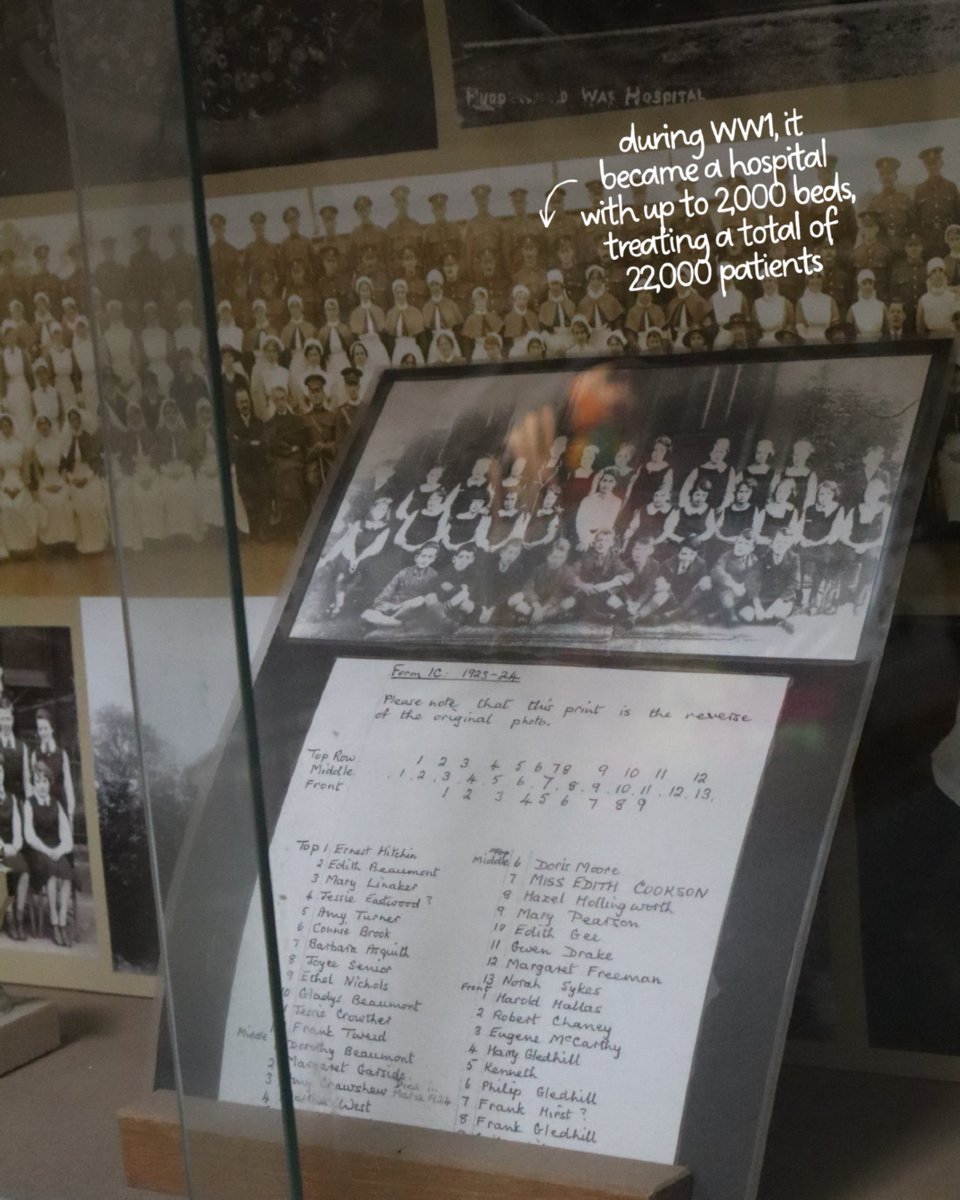 WAR HOSPITAL
during WW1, it
became a hospital
with up to 2,000 beds,
treating a total of
22,000 patients
Form 1C: 1923-24
Please note that this print is the reverse
of the original photo.
Top Row 1 2 3 4 5 6 7 8 9 10 11 12
Middle 1. 2. 3. 4. 5. 6. 7. 8. 9. 10. 11. 12. 13.
Front 1 2 3 4 5 6 7 8 9
Top 1 Ernest Hitchin
2 Edith Beaumont
3 Mary Linaker
4 Jessie Eastwood?
5 Amy Turner
6 Connie Brook
7 Barbara Asquith
8 Joyce Senior
9 Ethel Nichols
10 Gladys Beaumont
Jessie Crowther
Frank Tweed
Middle Dorothy Beaumont
2 Margaret Garside
3 Crawshaw Died March 1924
4 West
Middle 6 Doris Moore
7 MISS EDITH COOKSON
8 Hazel Hollingworth
9 Mary Pearson
10 Edith Gee
11 Gwen Drake
12 Margaret Freeman
13 Norah Sykes
Front 1 Harold Hallas
2 Robert Chaney
3 Eugene McCarthy
4 Harry Gledhill
5 Kenneth
6 Philip Gledhill
7 Frank Hirst?
8 Frank Gledhill